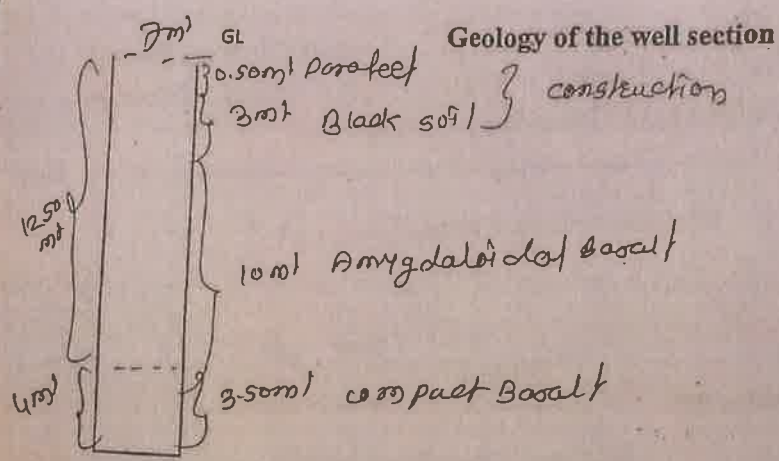 7mt GL Geology of the well section
0.50mt Parafeet
3mt Black soil } construction
12.50 mt
10mt Amygdaloidal Basalt
4mt 3.50mt compact Basalt